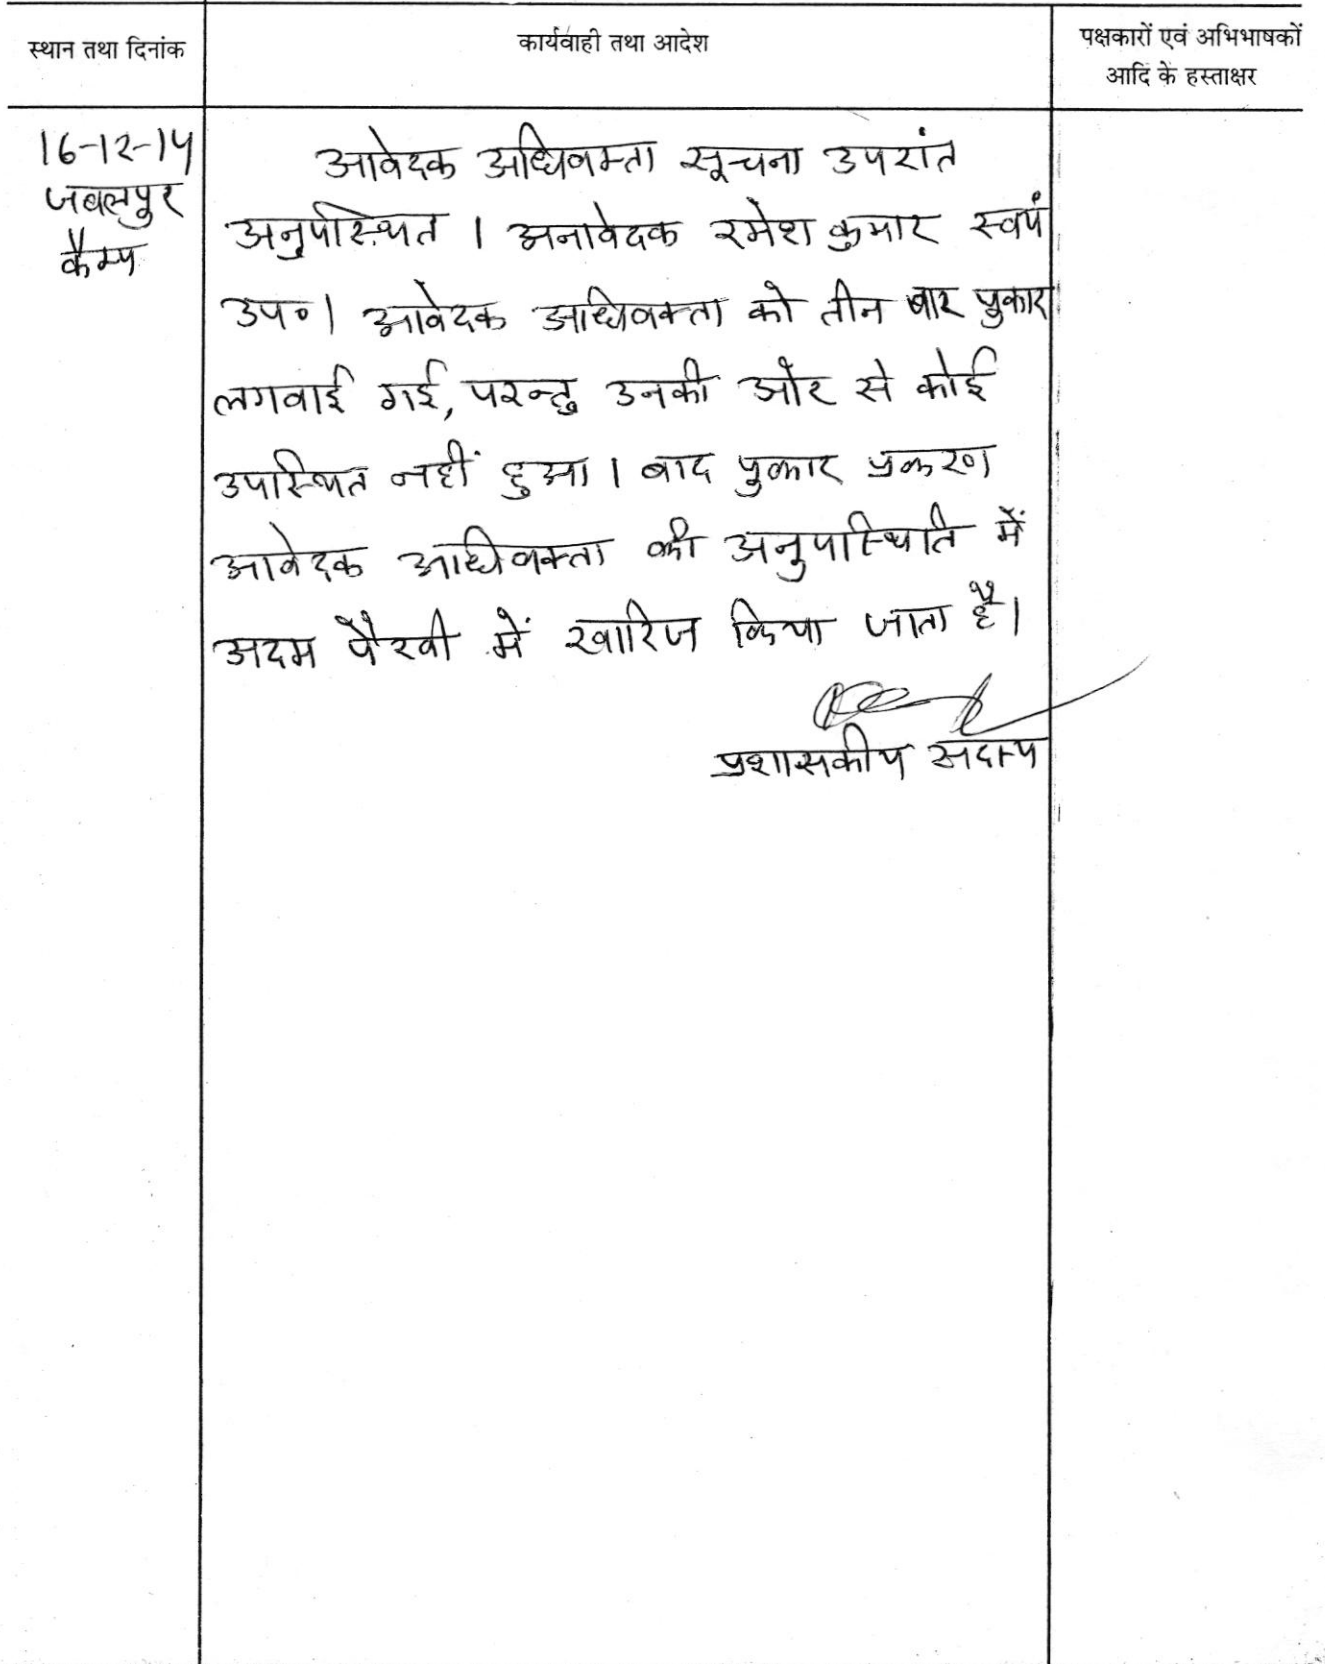 स्थान तथा दिनांक
कार्यवाही तथा आदेश
पक्षकारों एवं अभिभाषकों
आदि के हस्ताक्षर
16-12-14
जबलपुर
कैम्प
आवेदक अधिवक्ता सूचना उपरांत
अनुपस्थित । अनावेदक रमेश कुमार स्वयं
उप०। आवेदक अधिवक्ता को तीन बार पुकार
लगवाई गई, परन्तु उनकी ओर से कोई
उपस्थित नहीं हुआ । बाद पुकार प्रकरण
आवेदक अधिवक्ता की अनुपस्थिति में
अदम पैरवी में खारिज किया जाता है।
प्रशासकीय सदस्य